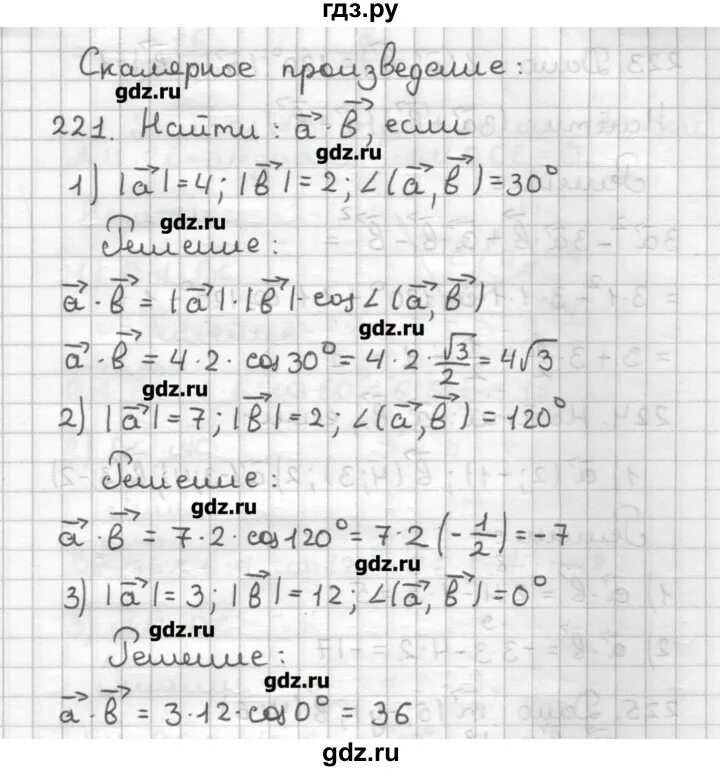 гдз.ру
Скалярное произведение:
gdz.ru
221. Найти: a⃗ · b⃗, если
gdz.ru
1) |a⃗| = 4; |b⃗| = 2; ∠(a⃗, b⃗) = 30°
gdz.ru
Решение:
a⃗ · b⃗ = |a⃗| · |b⃗| · cos∠(a⃗, b⃗)
gdz.ru
a⃗ · b⃗ = 4 · 2 · cos30° = 4 · 2 · √3/2 = 4√3
gdz.ru
2) |a⃗| = 7; |b⃗| = 2; ∠(a⃗, b⃗) = 120°
Решение:
gdz.ru
a⃗ · b⃗ = 7 · 2 · cos120° = 7 · 2 (-1/2) = -7
gdz.ru
3) |a⃗| = 3; |b⃗| = 12; ∠(a⃗, b⃗) = 0°
gdz.ru
Решение:
gdz.ru
a⃗ · b⃗ = 3 · 12 · cos0° = 36
gdz.ru